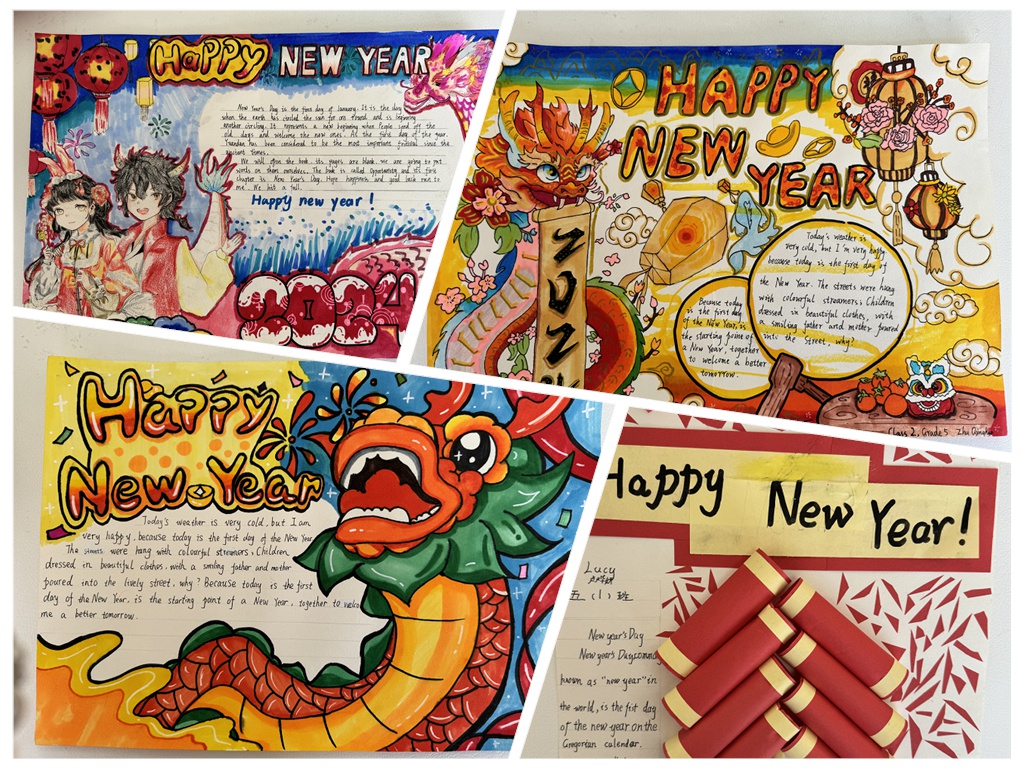 Happy NEW YEAR
New Year's Day is the first day of January. It is the day
when the earth has circled the sun for one round and is beginning
another circling. It represents a new beginning when people send off the
old days and welcome the new ones. As the first day of the year,
Yuandan has been considered to be the most important festival since the
ancient times.
We will open the book. Its pages are blank. We are going to put
words on them ourselves. The book is called Opportunity and its first
chapter is New Year's Day. Hope happiness and good luck run to
me. We bit a full.
Happy new year !
2024
HAPPY
NEW
YEAR
Today's weather is
very cold, but I'm very happy
because today is the first day of
the New Year. The streets were hung
with colourful streamers; Children
dressed in beautiful clothes, with
a smiling father and mother poured
into the street, why?
Because today
is the first day
of the New Year, is
the starting point of
a New Year, together
to welcome a better
tomorrow.
Class 2, Grade 5 Zhu
Happy
New Year
Today's weather is very cold, but I am
very happy, because today is the first day of the New Year
The streets were hung with colourful streamers; Children
dressed in beautiful clothes, with a smiling father and mother
poured into the lively street, why? Because today is the first
day of the New Year, is the starting point of a New Year, together to welco
me a better tomorrow.
Happy New Year!
Lucy
五 (1) 班
New year's Day
New year's Day, commonly
known as "new year" in
the world, is the fist day
of the new year on the
Gregorian calendar.